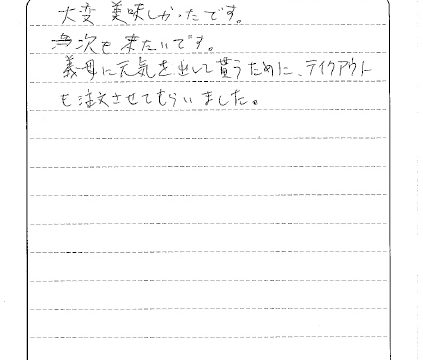 大変美味しかったです。
次も来たいです。
義母に元気を出して貰うために、テイクアウト
も注文させてもらいました。